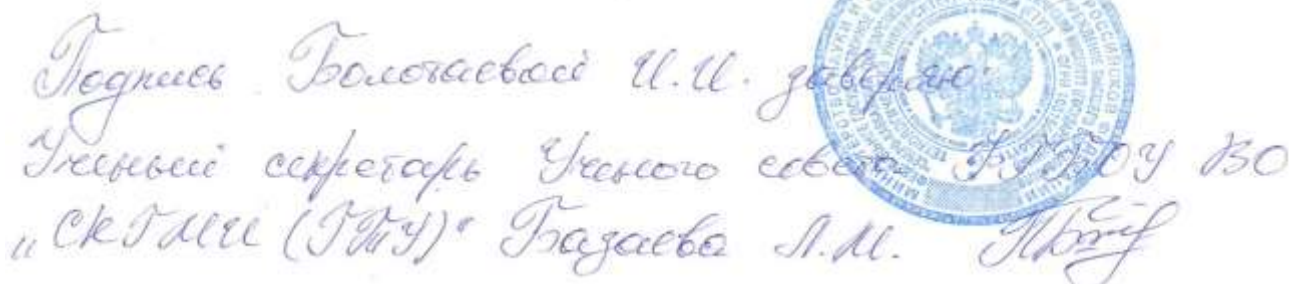 Подпись Болотаевой И.И. заверяю:
Ученый секретарь Ученого совета ФГБОУ ВО
"СКГМИ (ГТУ)" Базаева Л.М.